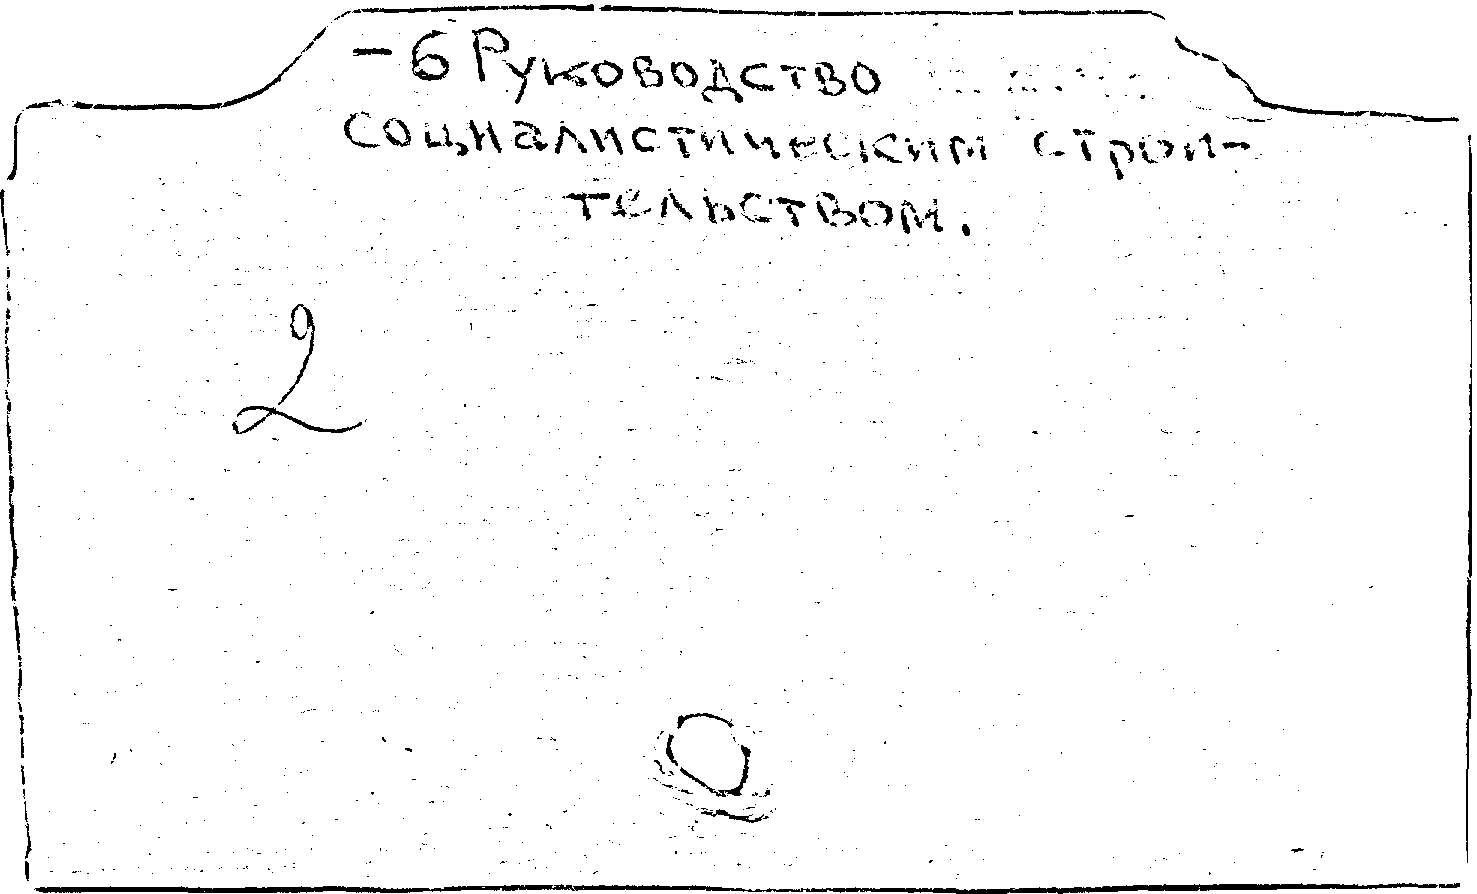 -6 Руководство
социалистическим строи-
тельством.
2